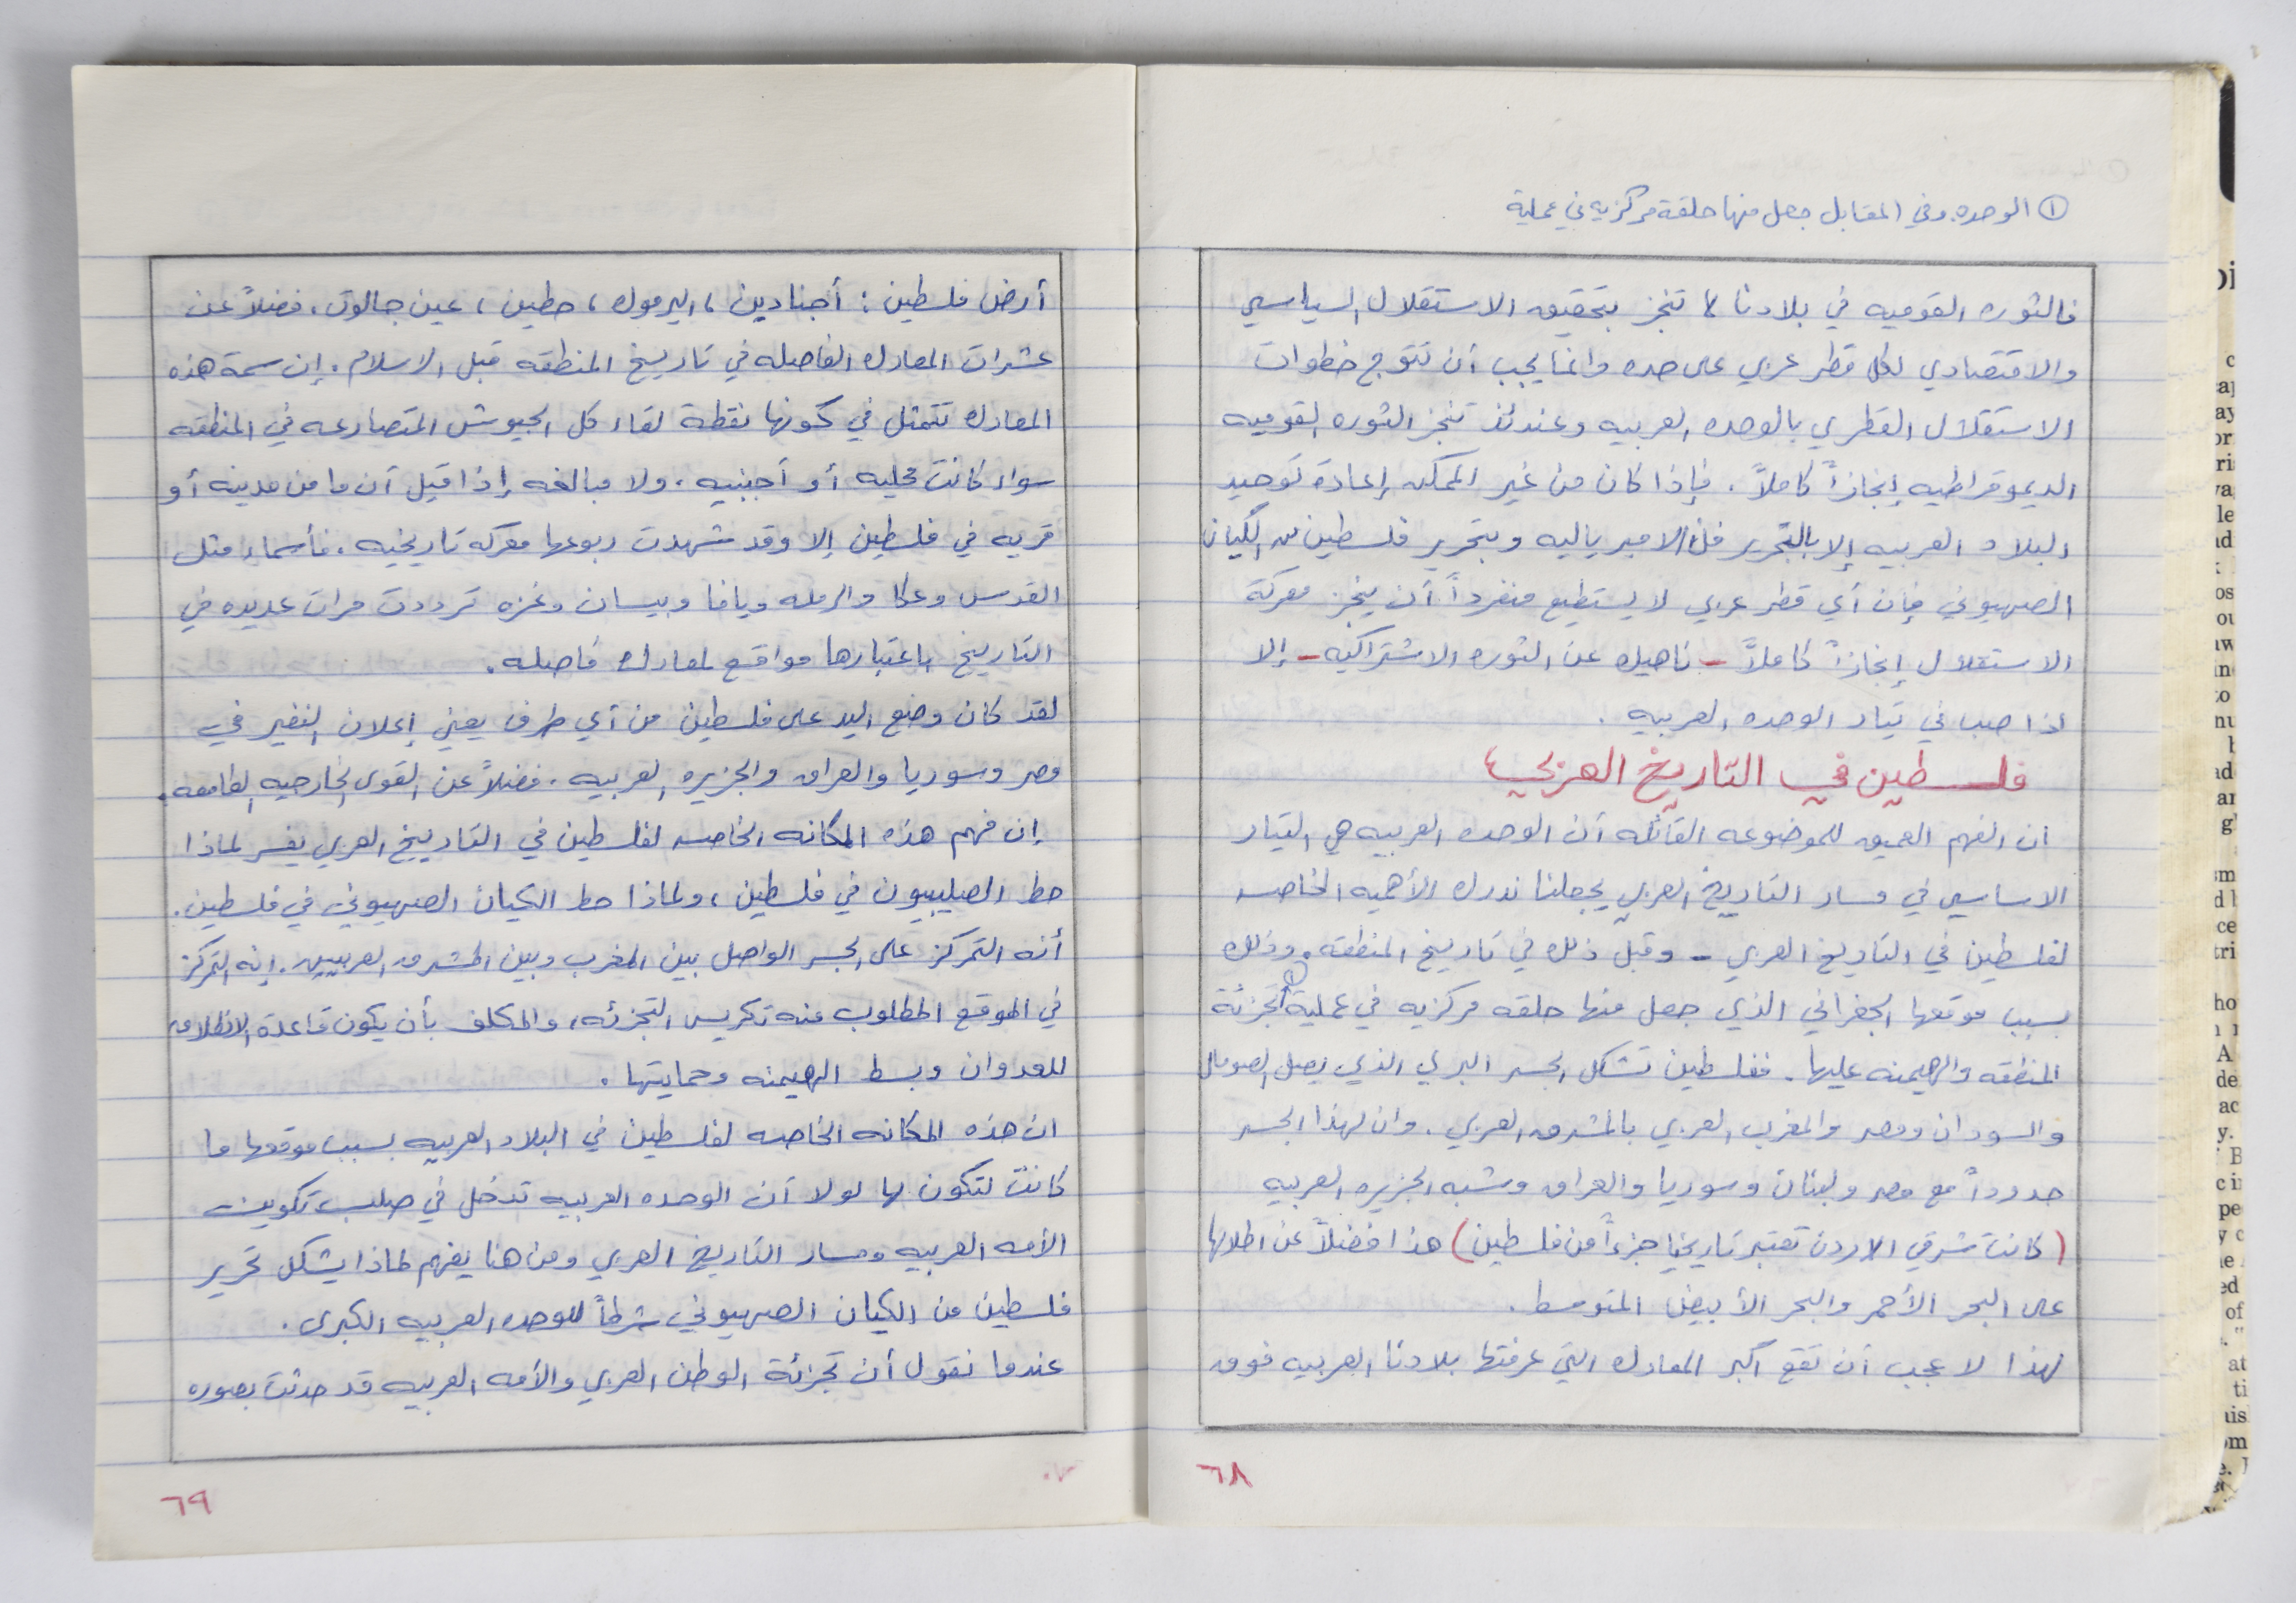 ① الوحده. وفي المقابل جعل منها حلقة مركزيه في عملية
فالثوره القوميه في بلادنا لا تنجز بتحقيق الاستقلال السياسي
والاقتصادي لكل قطر عربي على حده وانما يجب أن تتوج خطوات
الاستقلال القطري بالوحده العربيه وعندئذ تنجز الثوره القوميه
الديموقراطيه إنجازاً كاملاً. فإذا كان من غير الممكن إعادة توحيد
البلاد العربيه إلا بالتحرر من الامبرياليه وبتحرير فلسطين من الكيان
الصهيوني فإن أي قطر عربي لا يستطيع منفرداً أن ينجز معركة
الاستقلال إنجازاً كاملاً - ناهيك عن الثوره الاشتراكيه - إلا
اذا صب في تيار الوحده العربيه .
فلسطين في التاريخ العربي
ان الفهم العميق للموضوعه القائله أن الوحده العربيه هي التيار
الاساسي في مسار التاريخ العربي يجعلنا ندرك الأهميه الخاصه
لفلسطين في التاريخ العربي - وقبل ذلك في تاريخ المنطقه. وذلك
بسبب موقعها الجغرافي الذي جعل منها حلقه مركزيه في عملية ① تجزئة
المنطقه والهيمنه عليها. ففلسطين تشكل الجسر البري الذي يصل الصومال
والسودان ومصر والمغرب العربي بالمشرق العربي. وان لهذا الجسر
حدوداً مع مصر ولبنان وسوريا والعراق وشبه الجزيره العربيه
(كانت شرقي الاردن تعتبر تاريخيا جزءاً من فلسطين) هذا فضلاً عن اطلالها
على البحر الأحمر والبحر الأبيض المتوسط.
لهذا لا عجب أن تقع أكبر المعارك التي عرفتها بلادنا العربيه فوق
٦٨
أرض فلسطين : أجنادين، اليرموك، حطين، عين جالوت. فضلاً عن
عشرات المعارك الفاصله في تاريخ المنطقه قبل الاسلام. إن سمة هذه
المعارك تتمثل في كونها نقطة لقاء كل الجيوش المتصارعه في المنطقه
سواء كانت محليه أو أجنبيه. ولا مبالغه إذا قيل أن ما من مدينه أو
قريه في فلسطين إلا وقد شهدت ربوعها معركه تاريخيه. فأسماء مثل
القدس وعكا والرمله ويافا وبيسان وغزه ترددت مرات عديده في
التاريخ باعتبارها مواقع لمعارك فاصله.
لقد كان وضع اليد على فلسطين من أي طرف يعني إعلان النفير في
مصر وسوريا والعراق والجزيره العربيه. فضلاً عن القوى الخارجيه الطامعه.
إن فهم هذه المكانه الخاصه لفلسطين في التاريخ العربي يفسر لماذا
حط الصليبيون في فلسطين، ولماذا حط الكيان الصهيوني في فلسطين.
أنه التمركز على الجسر الواصل بين المغرب وبين المشرق العربيين. إنه التمركز
في الموقع المطلوب منه تكريس التجزئه، والمكلف بأن يكون قاعدة الانطلاق
للعدوان وبسط الهيمنه وحمايتها.
ان هذه المكانه الخاصه لفلسطين في البلاد العربيه بسبب موقعها ما
كانت لتكون لها لولا أن الوحده العربيه تدخل في صلب تكوين
الأمه العربيه ومسار التاريخ العربي ومن هنا يفهم لماذا يشكل تحرير
فلسطين من الكيان الصهيوني شرطاً للوحده العربيه الكبرى.
عندما نقول أن تجزئة الوطن العربي والأمه العربيه قد حدثت بصوره
٦٩